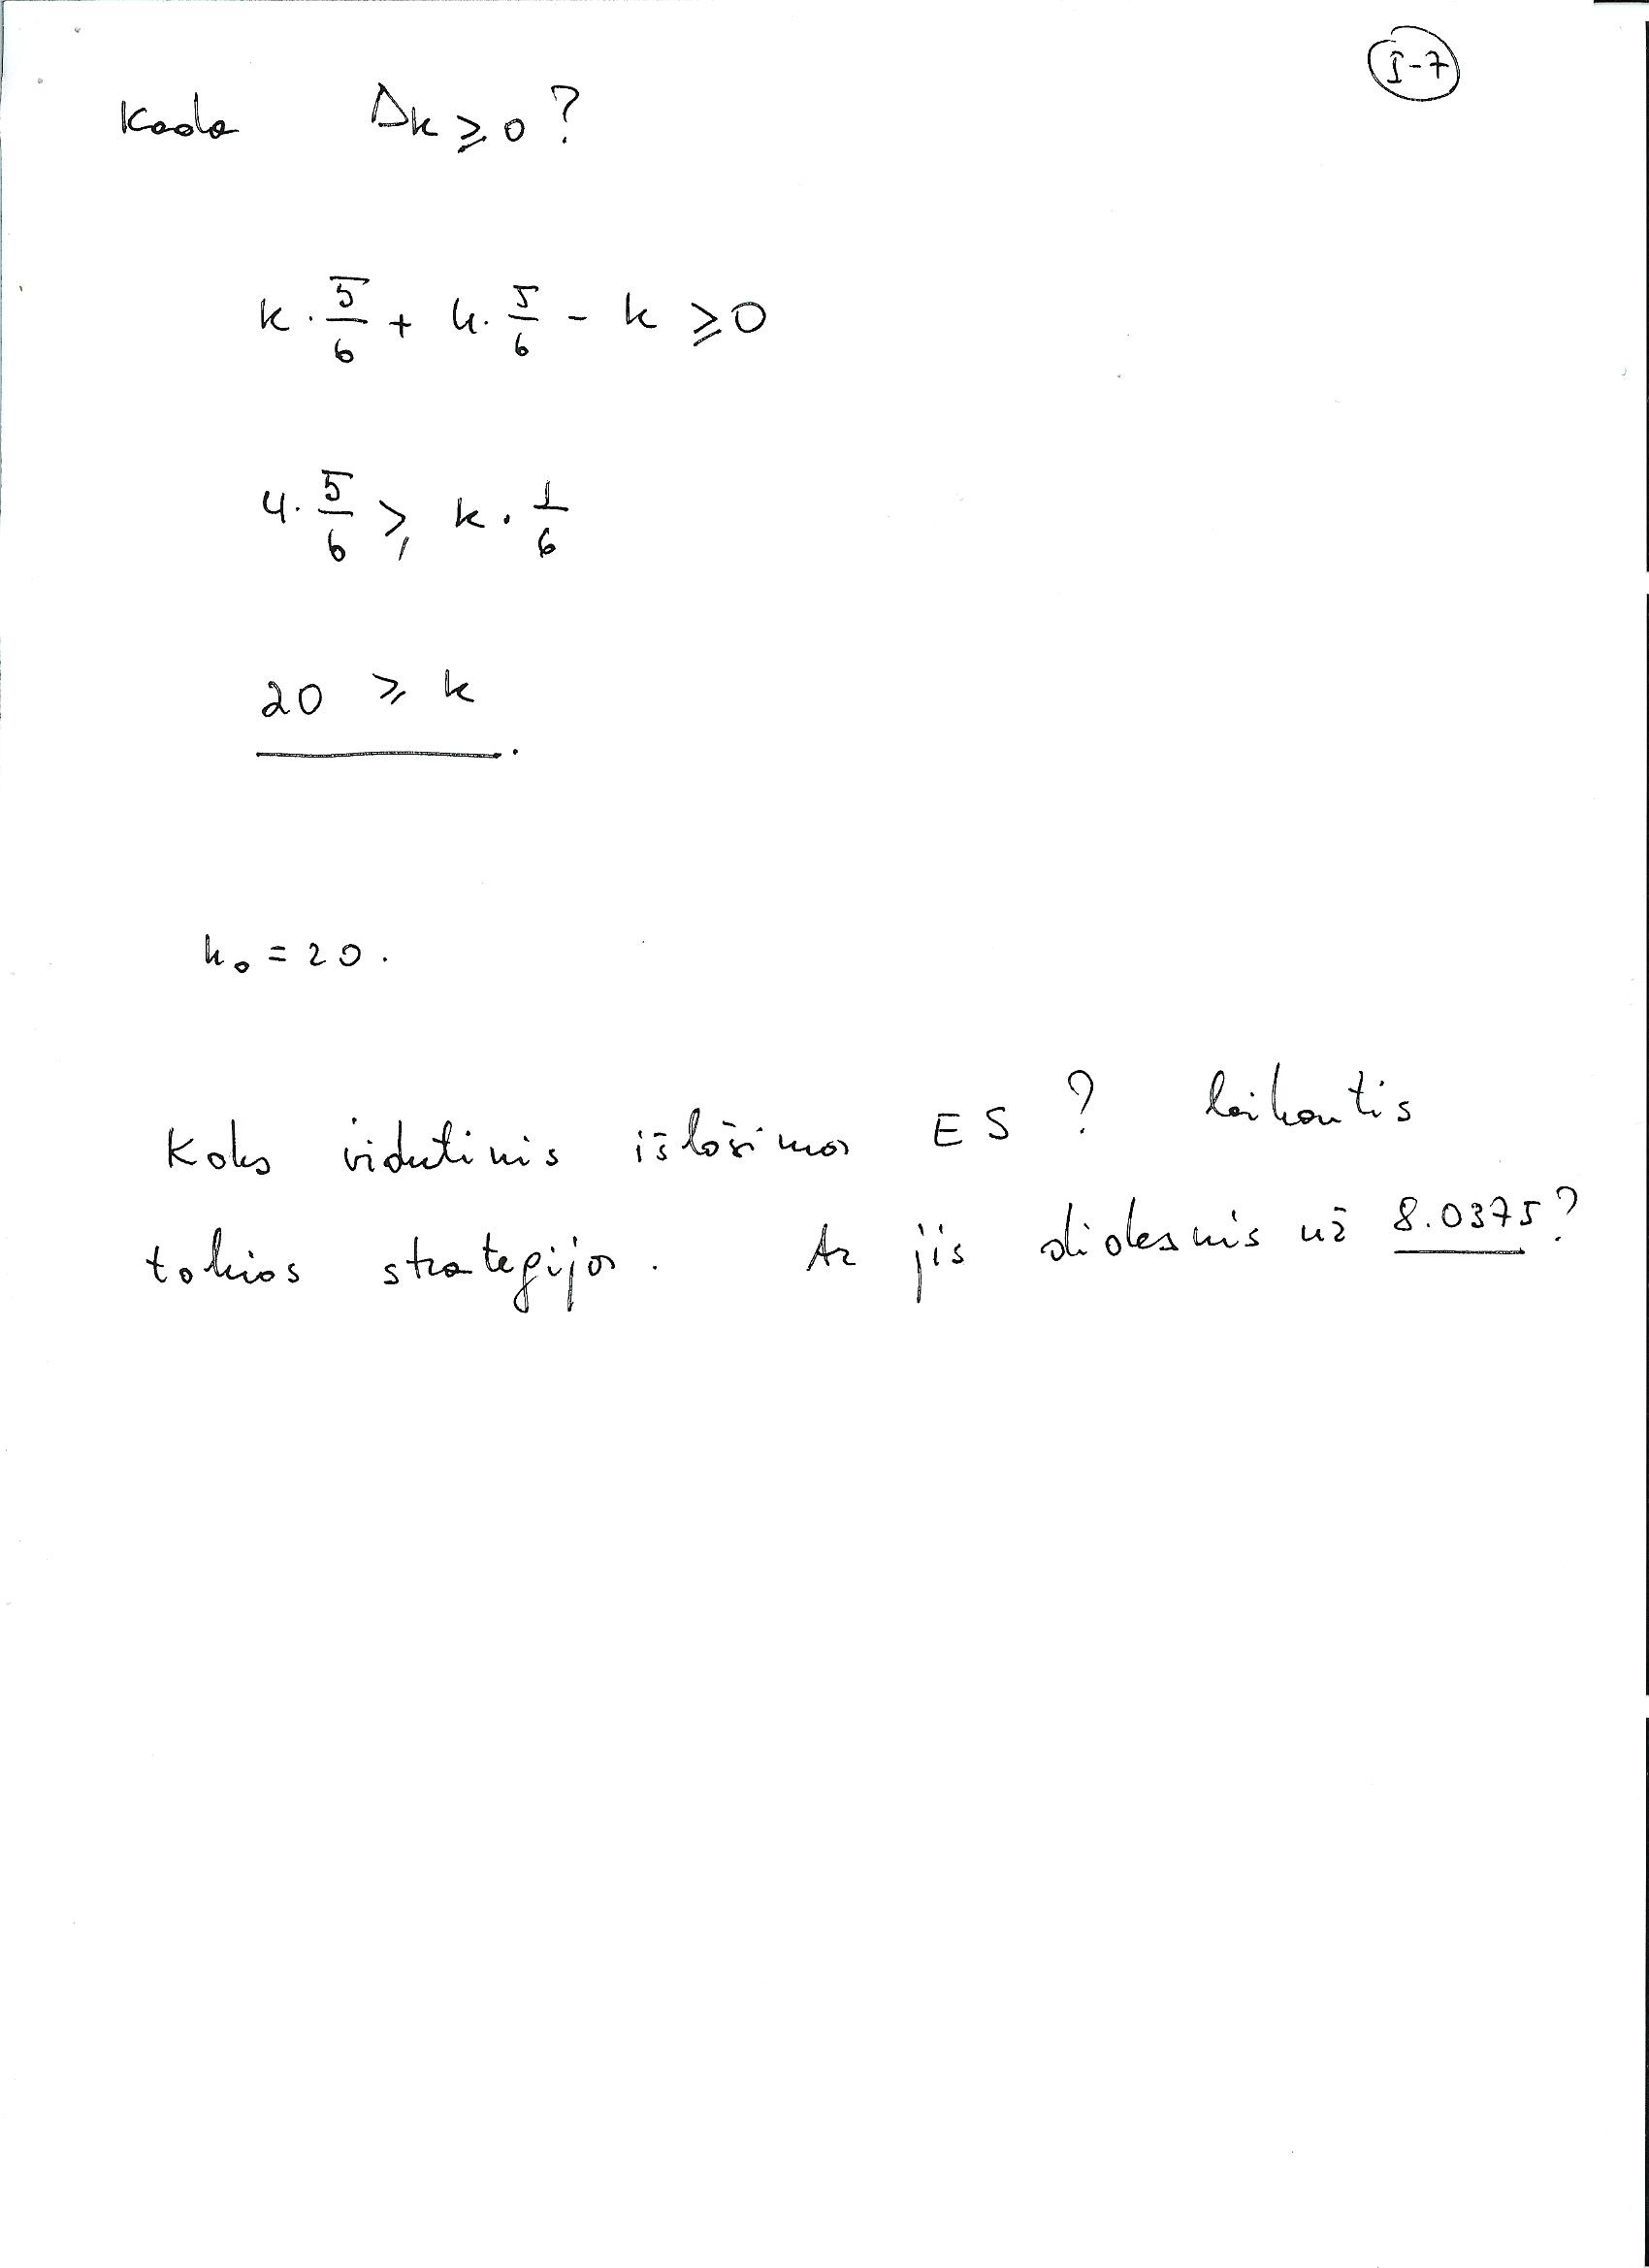 I-7
Kada Δk ≥ 0 ?
k · 5/6 + 4 · 5/6 - k ≥ 0
4 · 5/6 ≥ k · 1/6
20 ≥ k .
k₀ = 20 .
Koks vidutinis išlošimas ES ? laikantis
tokios strategijos . Ar jis didesnis už 8.0375 ?